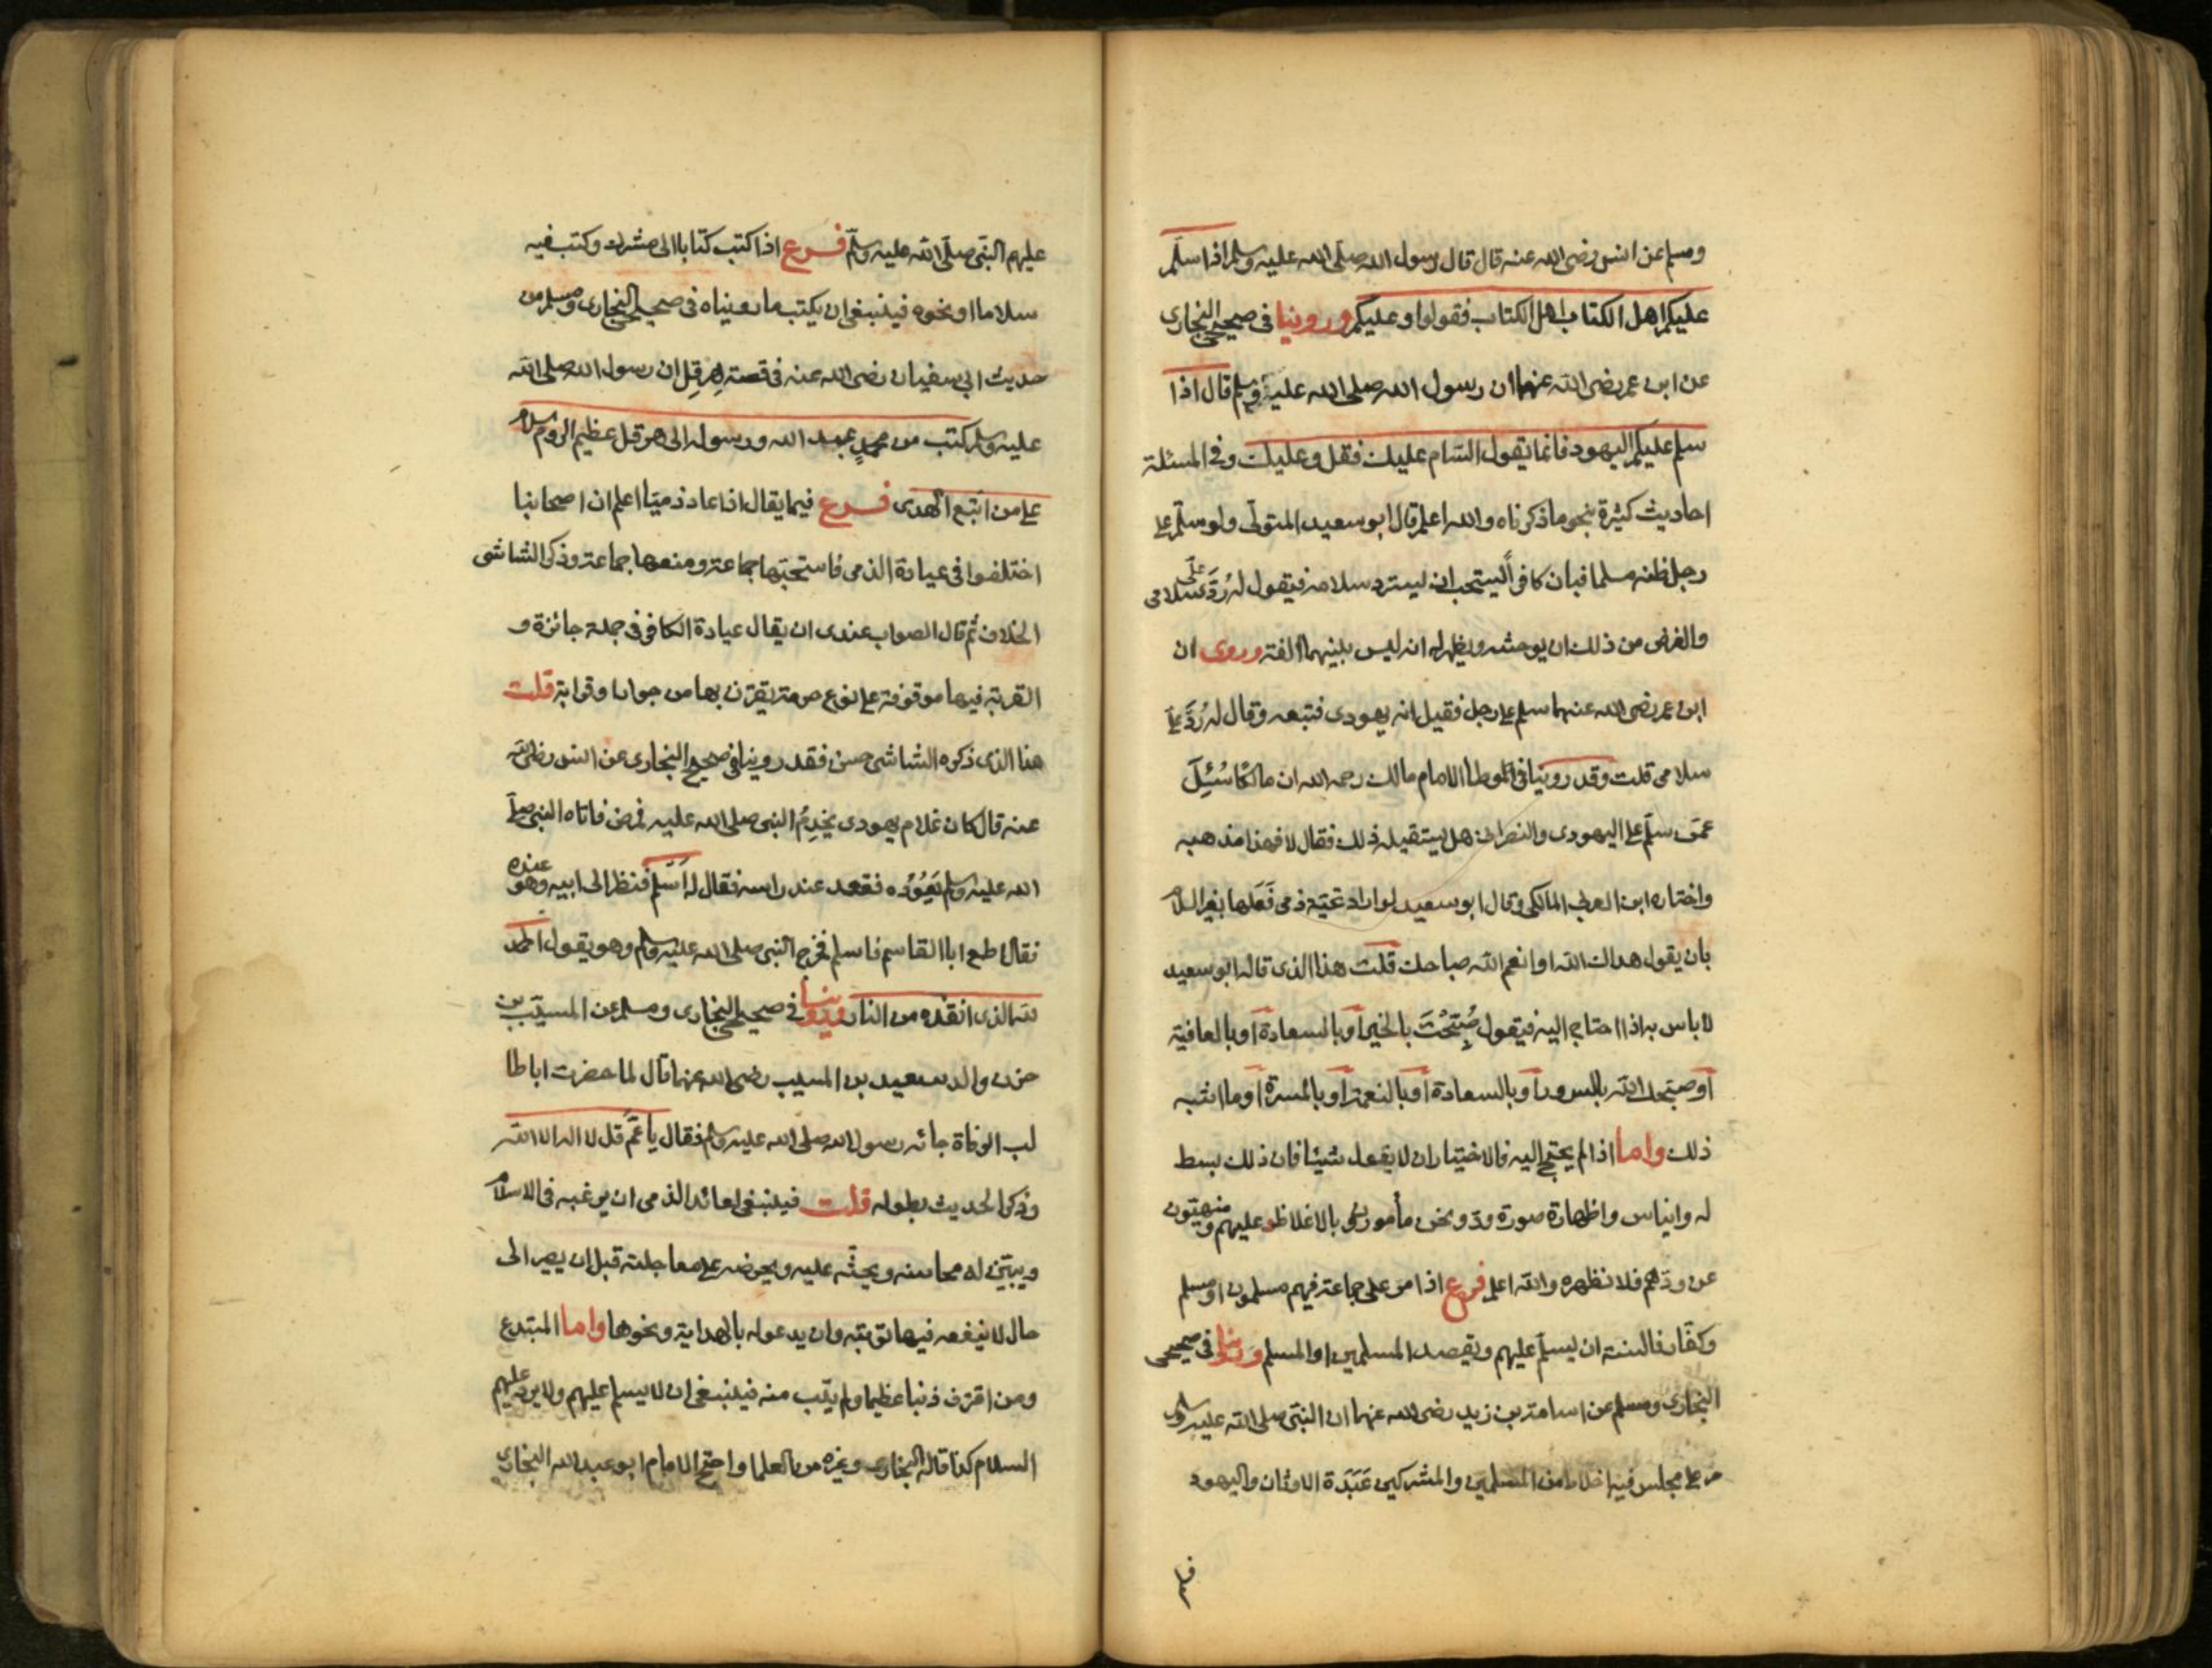 ومسلم عن انس رضى الله عنه قال قال رسول الله صلى الله عليه وسلم اذا سلم
عليكم اهل الكتاب اهل الكتاب فقولوا وعليكم وروينا فى صحيح البخارى
عن ابن عمر رضى الله عنهما ان رسول الله صلى الله عليه وسلم قال اذا
سلم عليكم اليهود فانما يقول السام عليك فقل وعليك وفى المسئلة
احاديث كثيرة بنحو ما ذكرناه والله اعلم قال ابو سعيد المتولى ولو سلم على
رجل ظنه مسلما فبان كافرا يستحب ان يسترد سلامه فيقول له رُدَّ علىّ سلامى
والغرض من ذلك ان يوحشه ويظهر له انه ليس بينهما الفة وروى ان
ابن عمر رضى الله عنهما سلم على رجل فقيل انه يهودى فتبعه وقال له رُدَّ علىّ
سلامى قلت وقد روينا فى الموطا الامام مالك رحمه الله ان مالكا سُئِلَ
عمن سلّم على اليهودى والنصرانى هل يستقيله ذلك فقال لا فهذا مذهبه
واختاره ابن العربى المالكى وقال ابو سعيد لو اراد تحية ذمى فَعَلها بغير السلام
بان يقول هداك الله او انعم الله صباحك قلت هذا الذى قاله ابو سعيد
لا باس به اذا احتاج اليه فيقول صُبِّحْتَ بالخير او بالسعادة او بالعافية
او صبحك الله بالسرور او بالسعادة او بالنعمة او بالمسرة او ما اشبه
ذلك واما اذا لم يحتج اليه فالاختيار ان لا يقول شيئا فان ذلك بسط
له وايناس واظهارة صورة ودّ ونحن مأمورون بالاغلاظ عليهم ومنهيّون
عن ودّهم فلا نظهره والله اعلم فرع اذا مر على جماعة فيهم مسلمون او مسلم
وكفّار فالسنة ان يسلّم عليهم ويقصد المسلمين او المسلم وروينا فى صحيحى
البخارى ومسلم عن اسامة بن زيد رضى الله عنهما ان النبى صلى الله عليه وسلم
مر على مجلس فيه اخلاط من المسلمين والمشركين عَبَدَة الاوثان واليهود
عليهم النبى صلى الله عليه وسلم فرع اذا كتب كتابا الى مشرك وكتب فيه
سلاما او نحوه فينبغى ان يكتب ما رويناه فى صحيح البخارى ومسلم من
حديث ابى سفيان رضى الله عنه فى قصة هِرَقِل ان رسول الله صلى الله
عليه وسلم كتب من محمدٍ عبد الله ورسوله الى هرقل عظيم الروم سلام
على من اتبع الهدى فرع فيما يقال اذا عاد ذميّا اعلم ان اصحابنا
اختلفوا فى عيادة الذمى فاستحبّها جماعة ومنعها جماعة وذكر الشاشى
الخلاف ثم قال الصواب عندى ان يقال عيادة الكافر فى جملة جائزة و
القربة فيها موقوفة على نوع حرمة يقترن بها من جوار او قرابة قلت
هذا الذى ذكره الشاشى حسن فقد روينا فى صحيح البخارى عن انس رضى الله
عنه قال كان غلام يهودى يخدِمُ النبى صلى الله عليه فمرض فاتاه النبى صلى
الله عليه وسلم يَعُوْده فقعد عند راسه فقال له اَسْلِم فنظر الى ابيه وهو عنده
فقال اطع ابا القاسم فاسلم فخرج النبى صلى الله عليه وسلم وهو يقول الحمد
لله الذى انقذه من النار وروينا فى صحيحى البخارى ومسلم عن المسيّب بن
حزن والد سعيد بن المسيب رضى الله عنهما قال لما حضرت ابا طا
لب الوفاة جائه رسول الله صلى الله عليه وسلم فقال يا عَمّ قل لا اله الا الله
وذكر الحديث بطوله قلت فينبغى لعائد الذمى ان يرغبه فى الاسلام
ويبيّن له محاسنه ويحثّه عليه ويحرضه على معاجلته قبل ان يصير الى
حال لا ينفعه فيها توبته وان يدعو له بالهداية ونحوها واما المبتدع
ومن اقترف ذنبا عظيما ولم يتب منه فينبغى ان لا يسلم عليهم ولا يرد عليهم
السلام كذا قاله البخارى وغيره من العلما واحتج الامام ابو عبد الله البخارى